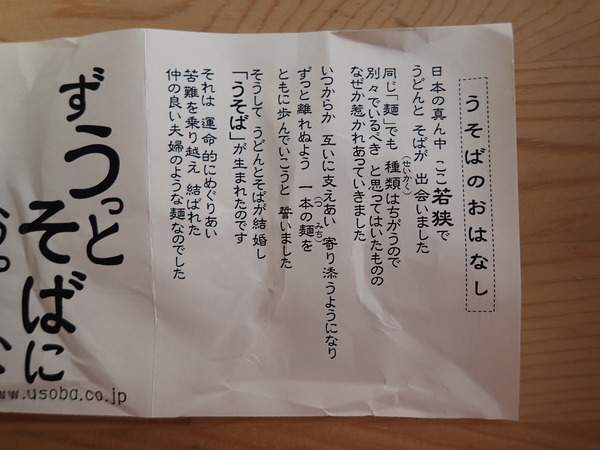 うそばのおはなし
日本の真ん中 ここ若狭で
うどんと そばが 出会いました
同じ「麺」でも 種類(せいかく)はちがうので
別々でいるべき と思ってはいたものの
なぜか惹かれあっていきました
いつからか 互いに支えあい 寄り添うようになり
ずっと離れぬよう 一本(つ)の麺(みち)を
ともに歩んでいこうと 誓いました
そうして うどんとそばが結婚し
「うそば」が生まれたのです
それは 運命的にめぐりあい
苦難を乗り越え 結ばれた
仲の良い夫婦のような麺なのでした
ずうっと
そばに
ww.usoba.co.jp